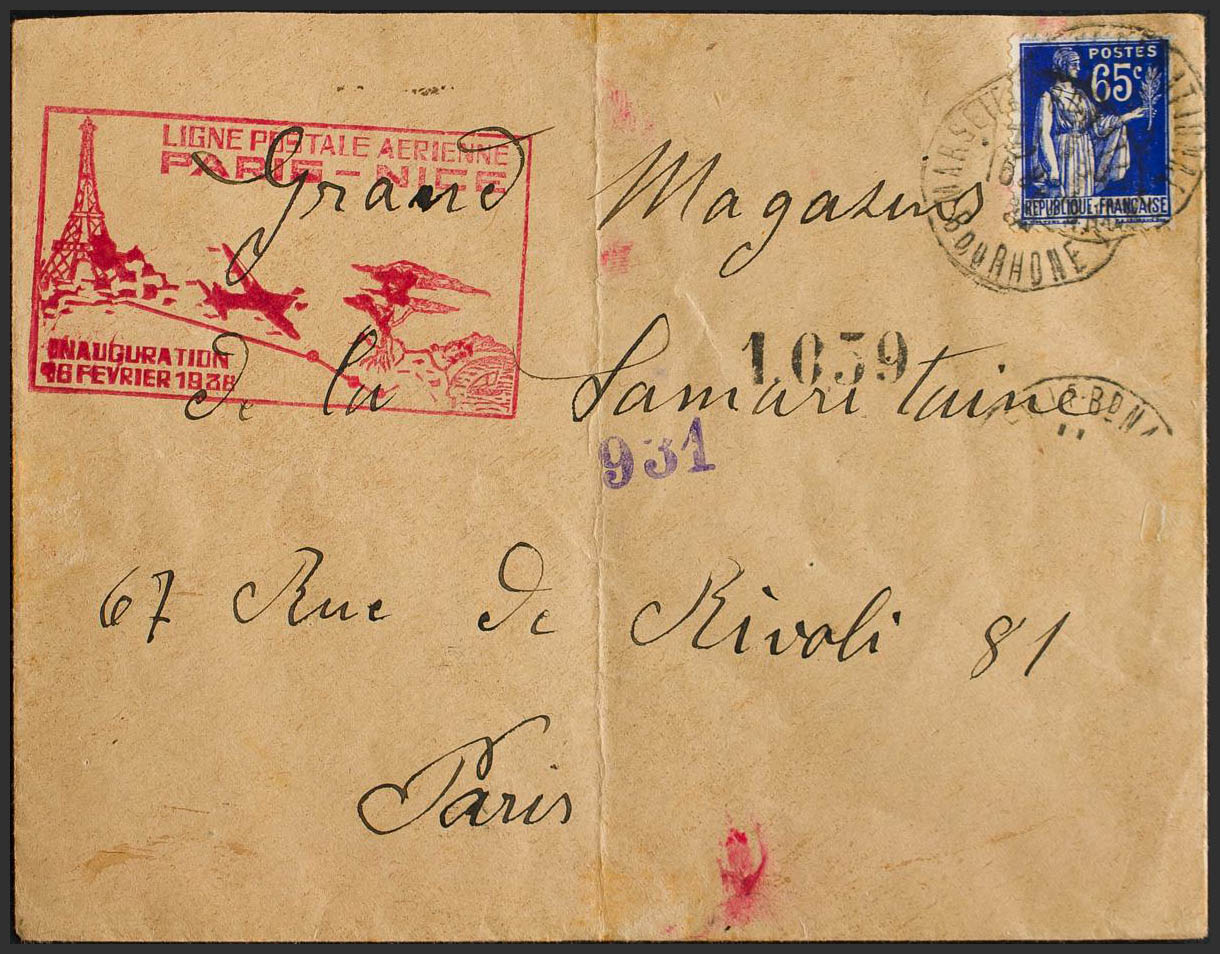 LIGNE POSTALE AERIENNE
PARIS - NICE
INAUGURATION
16 FEVRIER 1938
POSTES
65c
REPUBLIQUE FRANÇAISE
BOU RHONE
Grand Magasins
de la Samaritaine
1639
931
67 Rue de Rivoli 81
Paris